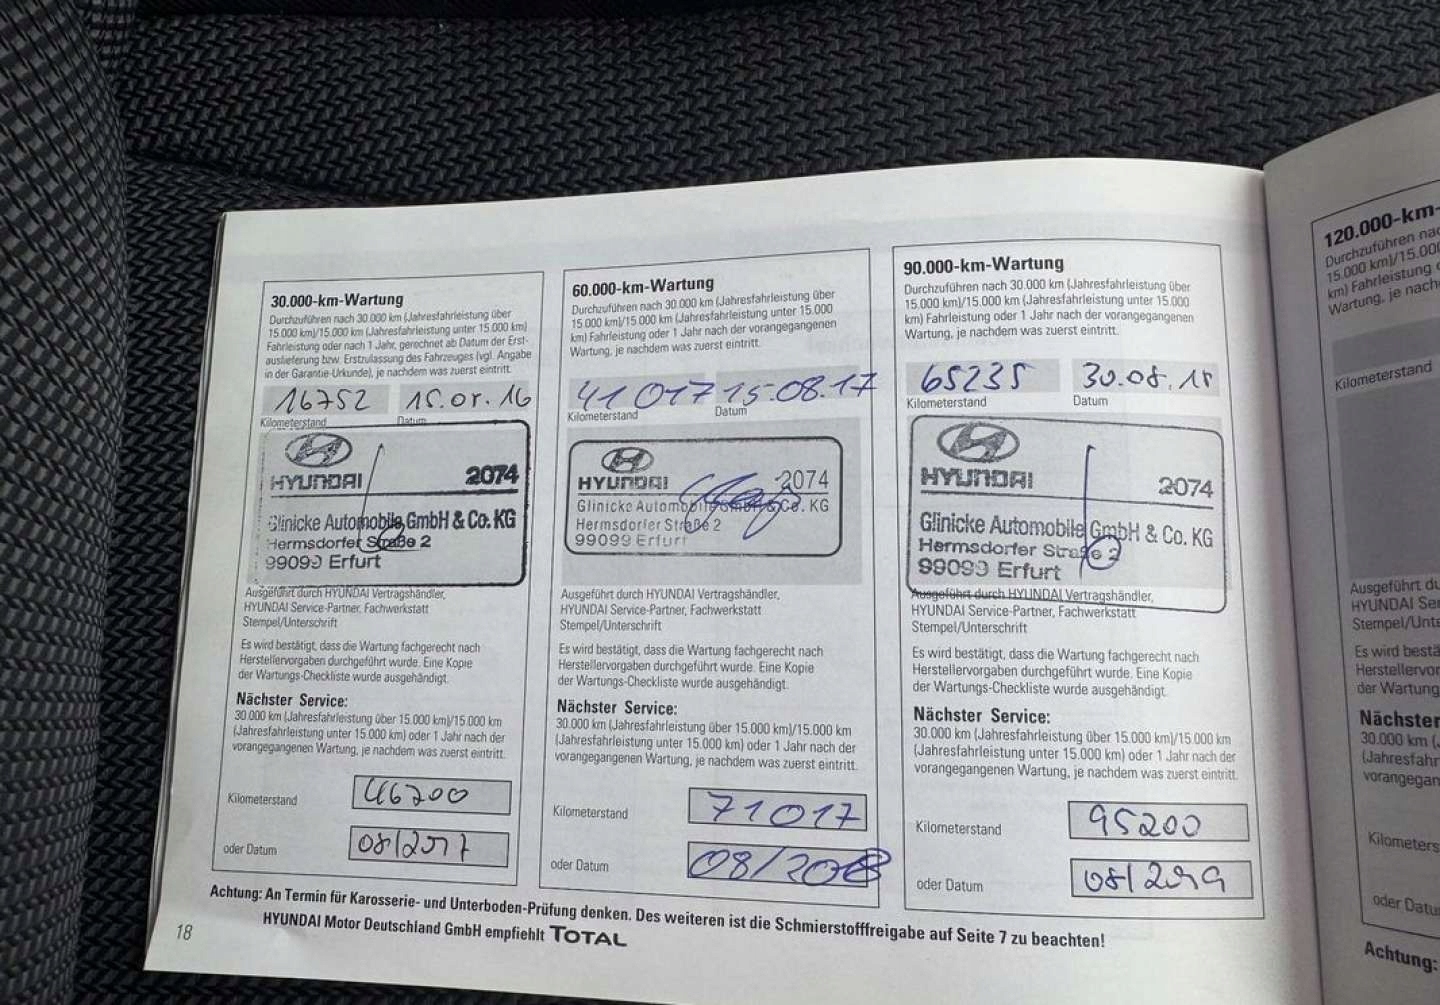 30.000-km-Wartung
Durchzuführen nach 30.000 km (Jahresfahrleistung über
15.000 km)/15.000 km (Jahresfahrleistung unter 15.000 km)
Fahrleistung oder nach 1 Jahr, gerechnet ab Datum der Erst-
auslieferung bzw. Erstzulassung des Fahrzeuges (vgl. Angabe
in der Garantie-Urkunde), je nachdem was zuerst eintritt.
16752 15.08.16
Kilometerstand Datum
HYUNDAI 2074
Glinicke Automobile GmbH & Co. KG
Hermsdorfer Straße 2
99099 Erfurt
Ausgeführt durch HYUNDAI Vertragshändler,
HYUNDAI Service-Partner, Fachwerkstatt
Stempel/Unterschrift
Es wird bestätigt, dass die Wartung fachgerecht nach
Herstellervorgaben durchgeführt wurde. Eine Kopie
der Wartungs-Checkliste wurde ausgehändigt.
Nächster Service:
30.000 km (Jahresfahrleistung über 15.000 km)/15.000 km
(Jahresfahrleistung unter 15.000 km) oder 1 Jahr nach der
vorangegangenen Wartung, je nachdem was zuerst eintritt.
Kilometerstand 46200
oder Datum 08/2017
60.000-km-Wartung
Durchzuführen nach 30.000 km (Jahresfahrleistung über
15.000 km)/15.000 km (Jahresfahrleistung unter 15.000
km) Fahrleistung oder 1 Jahr nach der vorangegangenen
Wartung, je nachdem was zuerst eintritt.
41017 15.08.17
Kilometerstand Datum
HYUNDAI 2074
Glinicke Automobile GmbH & Co. KG
Hermsdorfer Straße 2
99099 Erfurt
Ausgeführt durch HYUNDAI Vertragshändler,
HYUNDAI Service-Partner, Fachwerkstatt
Stempel/Unterschrift
Es wird bestätigt, dass die Wartung fachgerecht nach
Herstellervorgaben durchgeführt wurde. Eine Kopie
der Wartungs-Checkliste wurde ausgehändigt.
Nächster Service:
30.000 km (Jahresfahrleistung über 15.000 km)/15.000 km
(Jahresfahrleistung unter 15.000 km) oder 1 Jahr nach der
vorangegangenen Wartung, je nachdem was zuerst eintritt.
Kilometerstand 71017
oder Datum 08/2018
90.000-km-Wartung
Durchzuführen nach 30.000 km (Jahresfahrleistung über
15.000 km)/15.000 km (Jahresfahrleistung unter 15.000
km) Fahrleistung oder 1 Jahr nach der vorangegangenen
Wartung, je nachdem was zuerst eintritt.
65235 30.08.18
Kilometerstand Datum
HYUNDAI 2074
Glinicke Automobile GmbH & Co. KG
Hermsdorfer Straße 2
99099 Erfurt
Ausgeführt durch HYUNDAI Vertragshändler,
HYUNDAI Service-Partner, Fachwerkstatt
Stempel/Unterschrift
Es wird bestätigt, dass die Wartung fachgerecht nach
Herstellervorgaben durchgeführt wurde. Eine Kopie
der Wartungs-Checkliste wurde ausgehändigt.
Nächster Service:
30.000 km (Jahresfahrleistung über 15.000 km)/15.000 km
(Jahresfahrleistung unter 15.000 km) oder 1 Jahr nach der
vorangegangenen Wartung, je nachdem was zuerst eintritt.
Kilometerstand 95200
oder Datum 08/2019
Achtung: An Termin für Karosserie- und Unterboden-Prüfung denken. Des weiteren ist die Schmierstofffreigabe auf Seite 7 zu beachten!
HYUNDAI Motor Deutschland GmbH empfiehlt TOTAL
18
120.000-km-
Durchzuführen nac
15.000 km)/15.000
km) Fahrleistung
Wartung, je nach
Kilometerstand
Ausgeführt du
HYUNDAI Se
Stempel/Unte
Es wird bestä
Herstellervor
der Wartung
Nächster
30.000 km (
(Jahresfahr
vorangegan
Kilometers
oder Datu
Achtung: